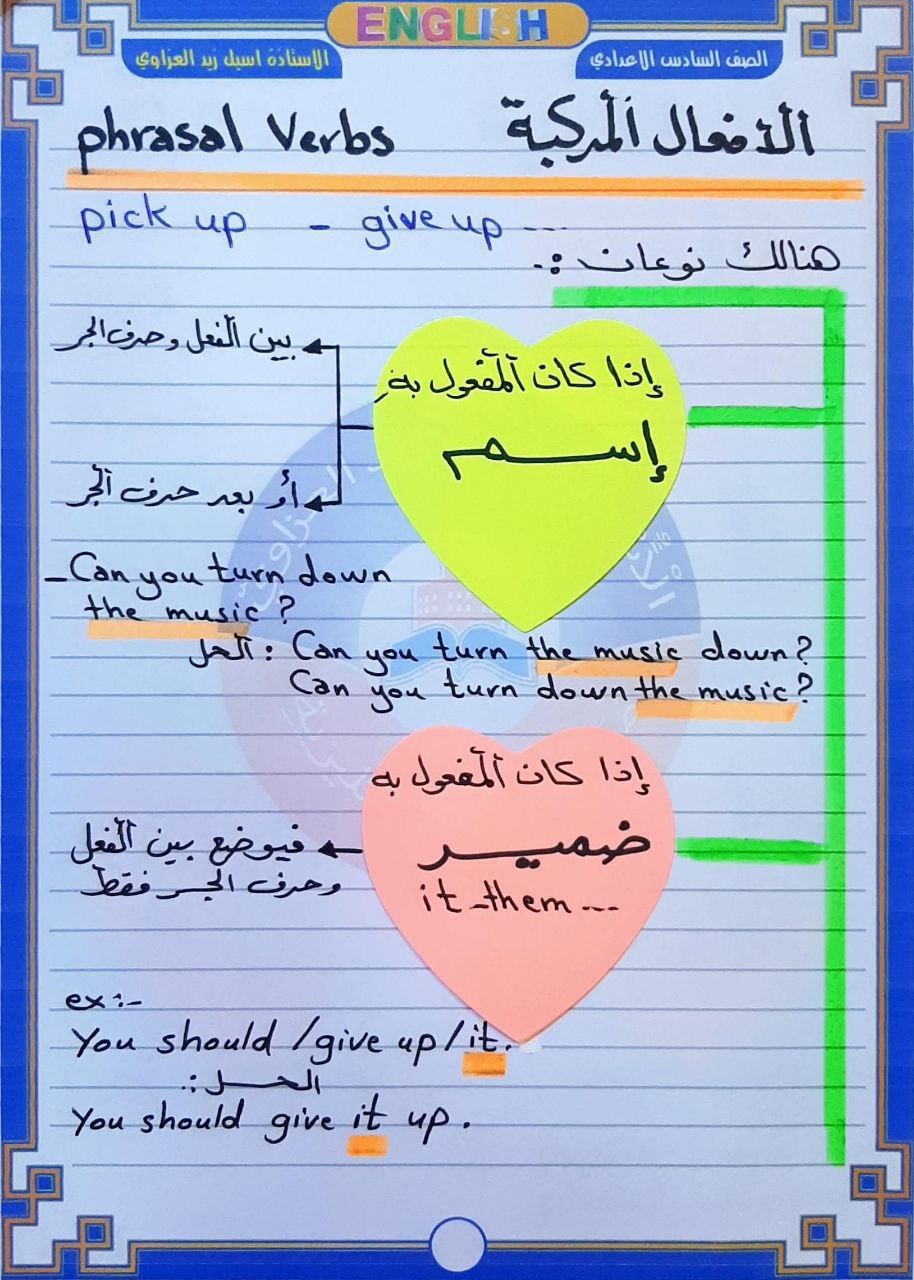 ENGLISH
الصف السادس الاعدادي
الاستاذة اسيل زيد العزاوي
phrasal Verbs
الأفعال المركبة
pick up - give up ...
هنالك نوعان :.
إذا كان المفعول بهِ
إســم
بين الفعل وحرف الجر
أو بعد حرف الجر
- Can you turn down
the music ?
الحل : Can you turn the music down?
Can you turn down the music?
إذا كان المفعول به
ضميـر
it - them ...
فيوضع بين الفعل
وحرف الجـر فقط
ex :-
You should / give up / it.
الحـل :.
You should give it up .